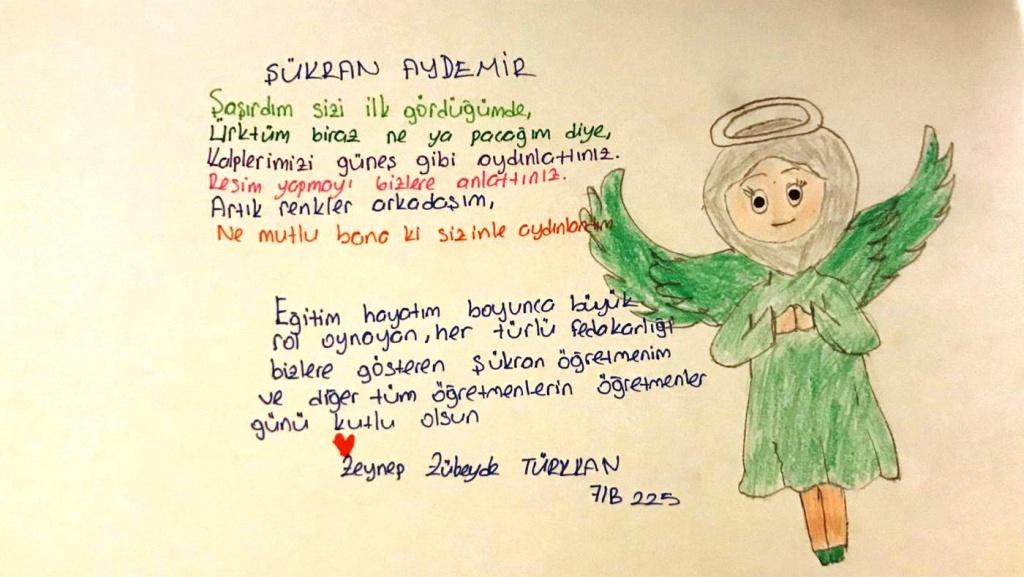 ŞÜKRAN AYDEMİR
Şaşırdım sizi ilk gördüğümde,
Ürktüm biraz ne ya pacağım diye,
Kalplerimizi güneş gibi aydınlattınız.
Resim yapmayı bizlere anlattınız.
Artık renkler arkadaşım,
Ne mutlu bana ki sizinle aydınlandım
Eğitim hayatım boyunca büyük
rol oynayan, her türlü fedakarlığı
bizlere gösteren Şükran öğretmenim
ve diğer tüm öğretmenlerin öğretmenler
günü kutlu olsun
Zeynep Zübeyde TÜRKKAN
7/B 225